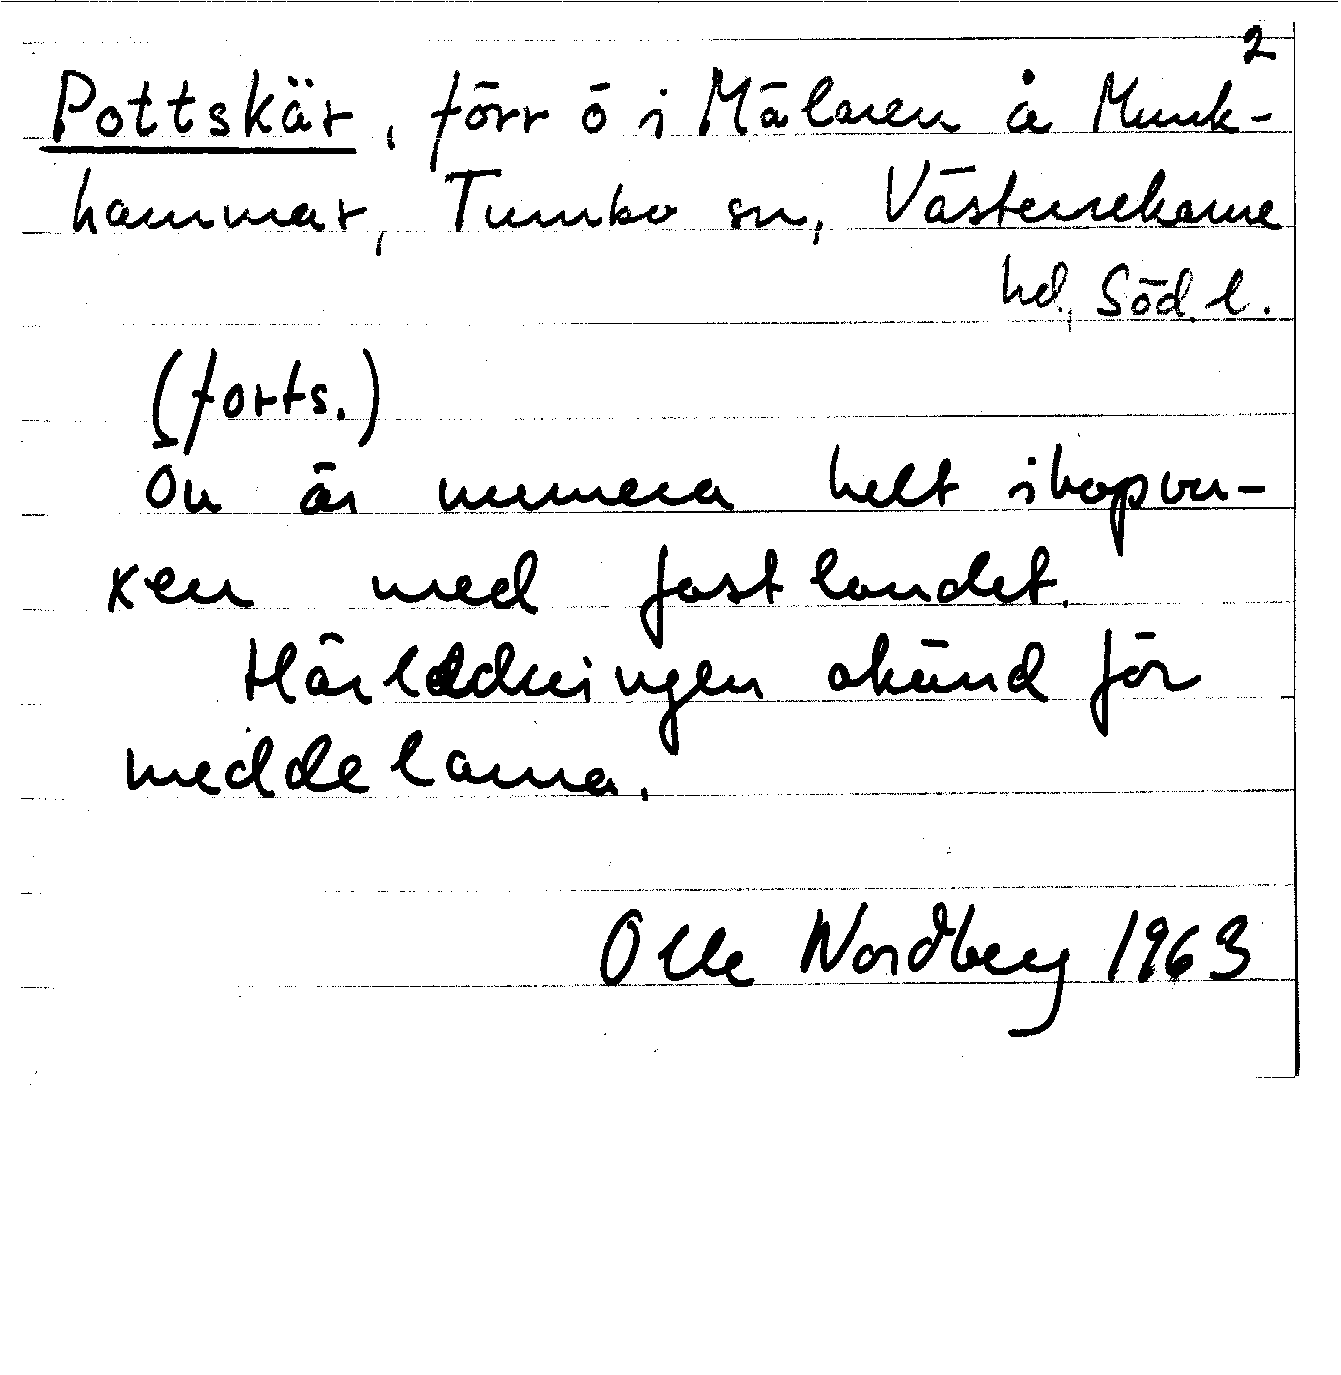 2
Pottskär, förr ö i Mälaren å Munk-
hammar, Tumbo sn, Västerrekarne
hd, Söd. l.
(forts.)
Ön är numera helt ihopvu-
xen med fastlandet.
Härledningen okänd för
meddelarna.
Olle Nordberg 1963